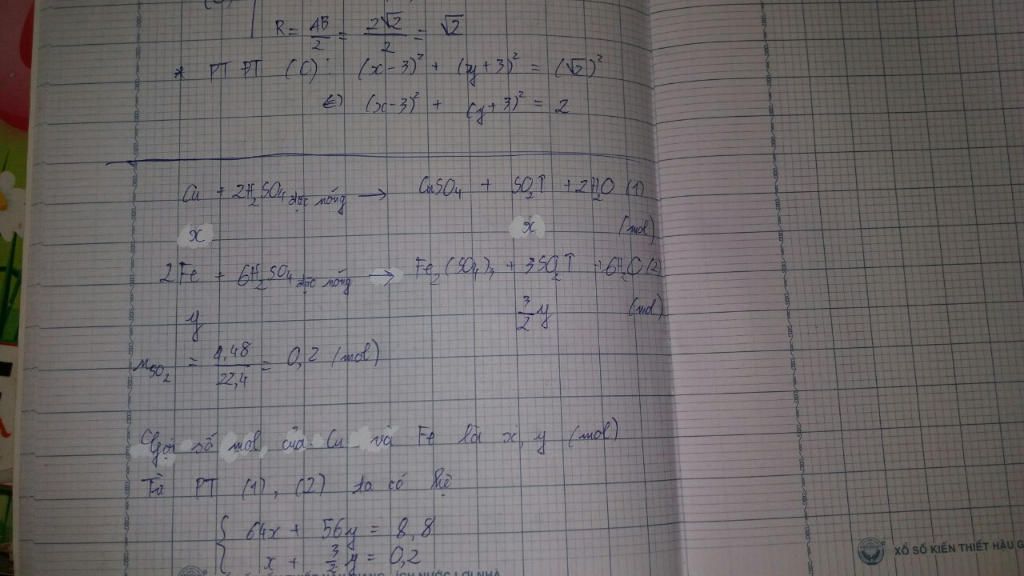 R = AB/2 = 2√2/2 = √2
* PT ĐT (C): (x-3)² + (y+3)² = (√2)²
⇔ (x-3)² + (y+3)² = 2
Cu + 2H₂SO₄ đặc nóng → CuSO₄ + SO₂↑ + 2H₂O (1)
x x (mol)
2Fe + 6H₂SO₄ đặc nóng → Fe₂(SO₄)₃ + 3SO₂↑ + 6H₂O (2)
y 3/2 y (mol)
nSO₂ = 4,48/22,4 = 0,2 (mol)
Gọi số mol của Cu và Fe là x, y (mol)
Từ PT (1), (2) ta có hệ
{ 64x + 56y = 8,8
{ x + 3/2 y = 0,2
XỔ SỐ KIẾN THIẾT HẬU G